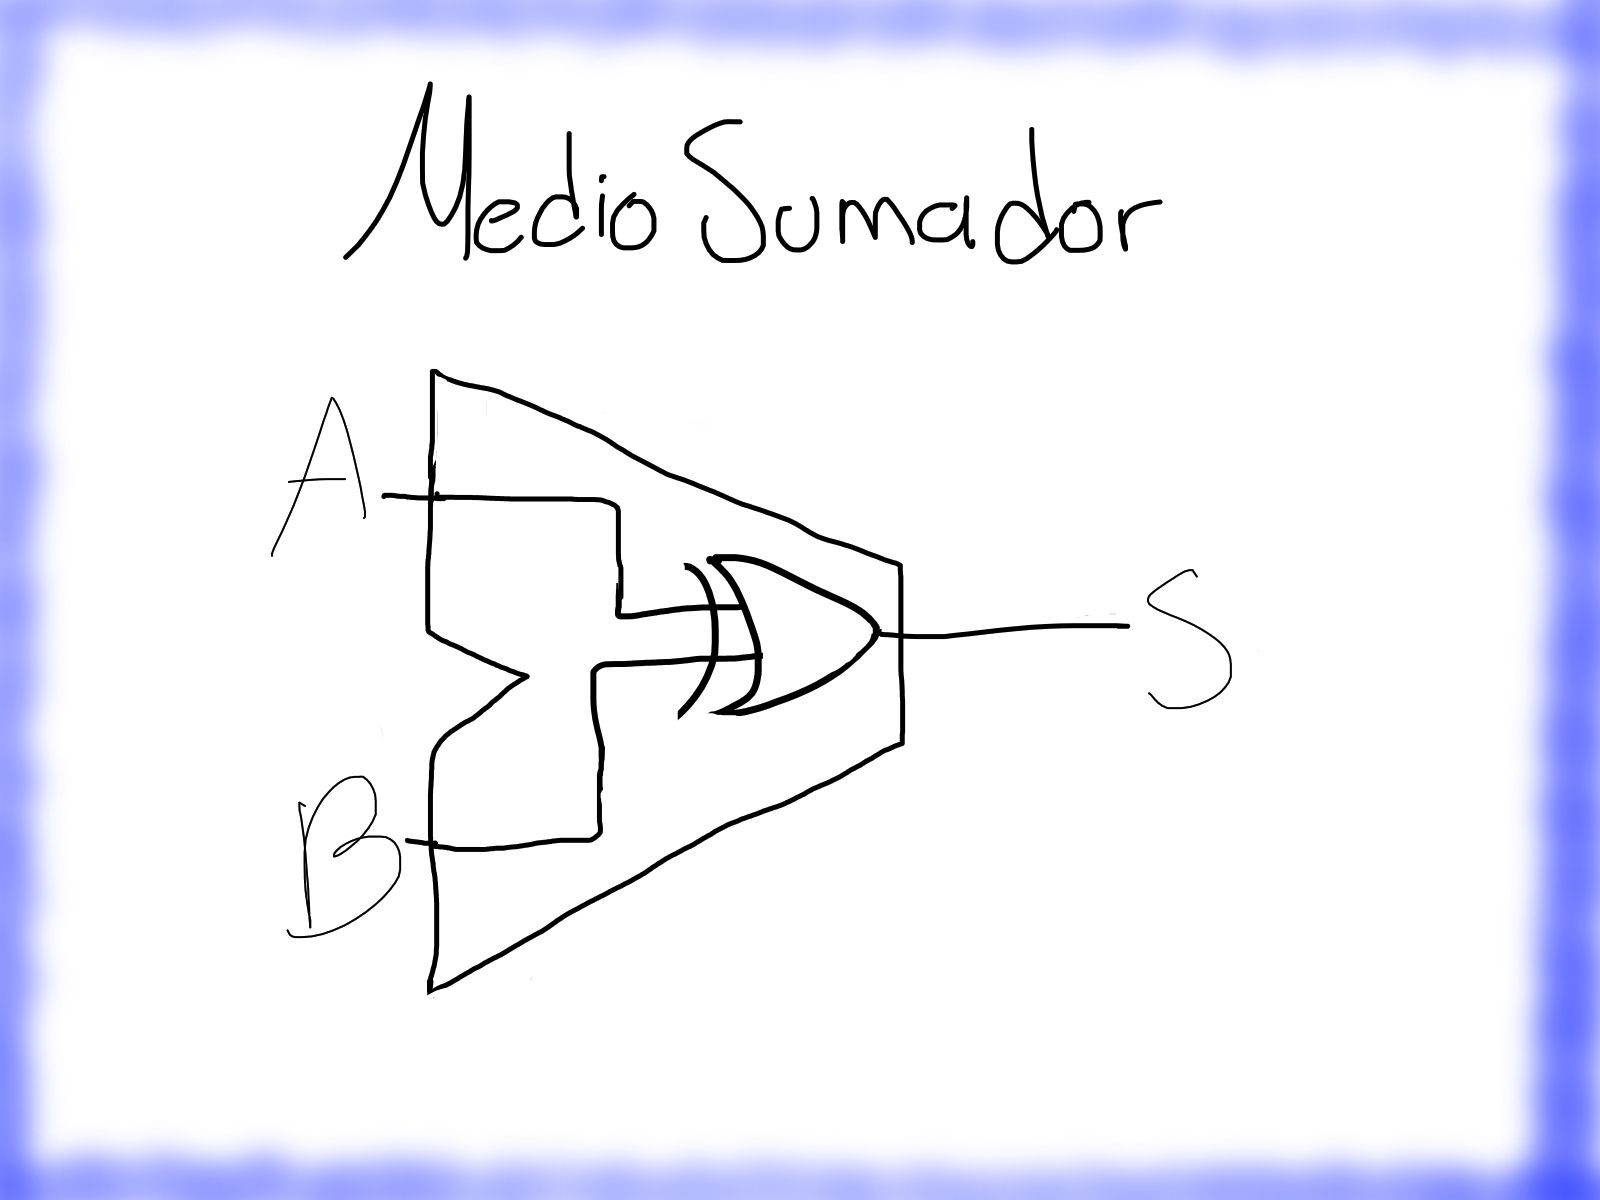 Medio Sumador
A
S
B